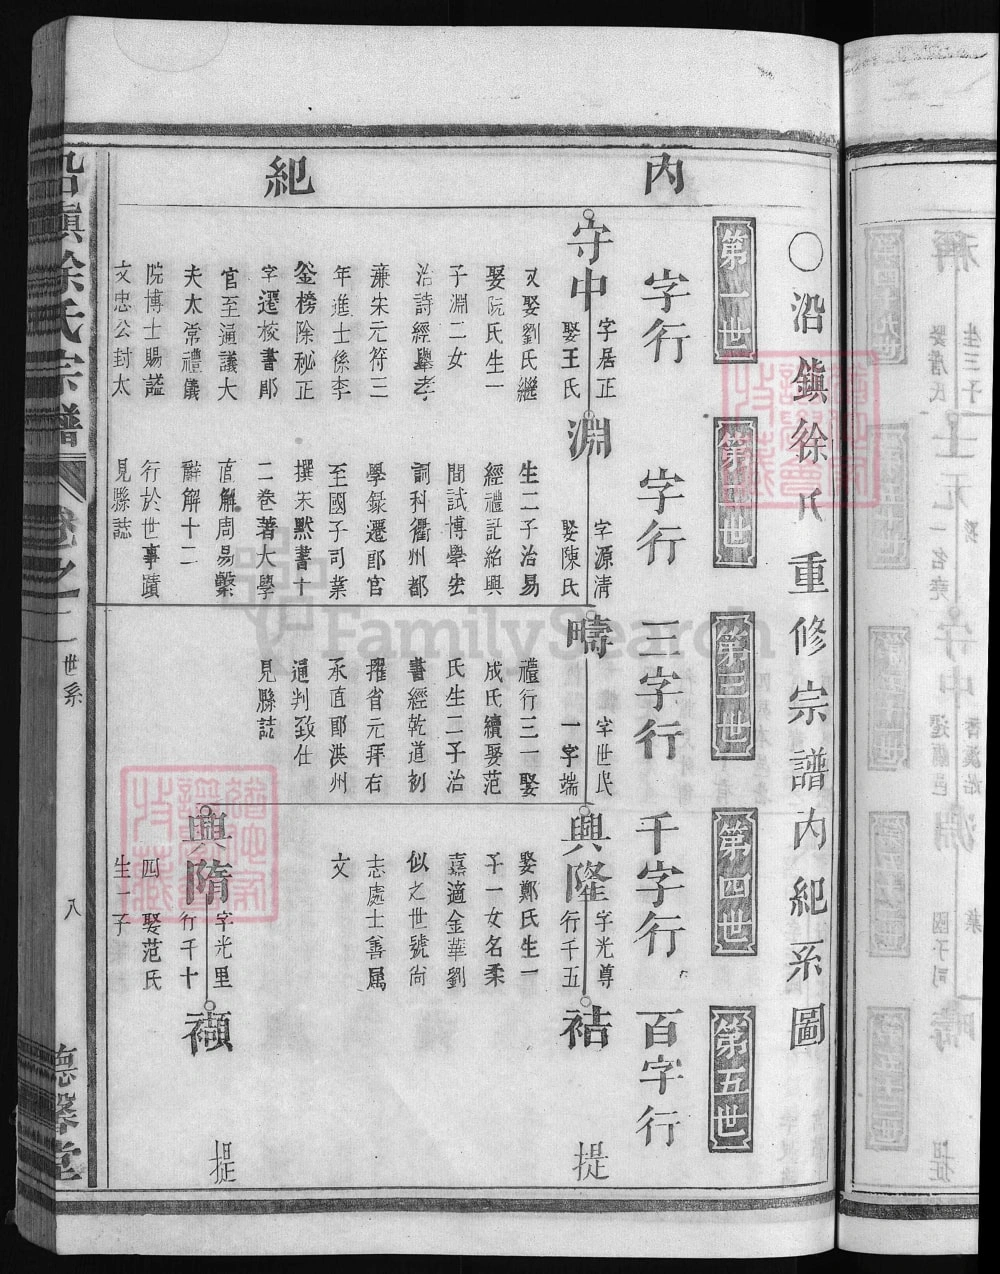 內紀
○沿鎮徐氏重修宗譜內紀系圖
第一世
第二世
第三世
第四世
第五世
字行
字行
三字行
千字行
百字行
守中
字居正
娶王氏
又娶劉氏繼
娶阮氏生一
子淵二女
治詩經舉孝
廉宋元符三
年進士係李
釜榜除秘正
字遷校書郎
官至通議大
夫太常禮儀
院博士賜諡
文忠公封太
淵
字源清
娶陳氏
生二子治易
經禮記紹興
間試博學宏
詞科衢州都
學錄遷郎官
至國子司業
撰朱默書十
二卷著大學
直解周易繫
辭解十二
行於世事蹟
見縣誌
疇
字世民
一字端
禮行三一娶
成氏續娶范
氏生二子治
書經乾道初
擢省元拜右
承直郎洪州
通判致仕
見縣誌
興隆
字光尊
行千五
娶鄭氏生一
子一女名柔
嘉適金華劉
似之世號尚
志處士善属
文
祮
提
興隋
字光里
行千十
四娶范氏
生一子
襭
提
沿鎮徐氏宗譜
卷之一
世系
八
德馨堂
FamilySearch